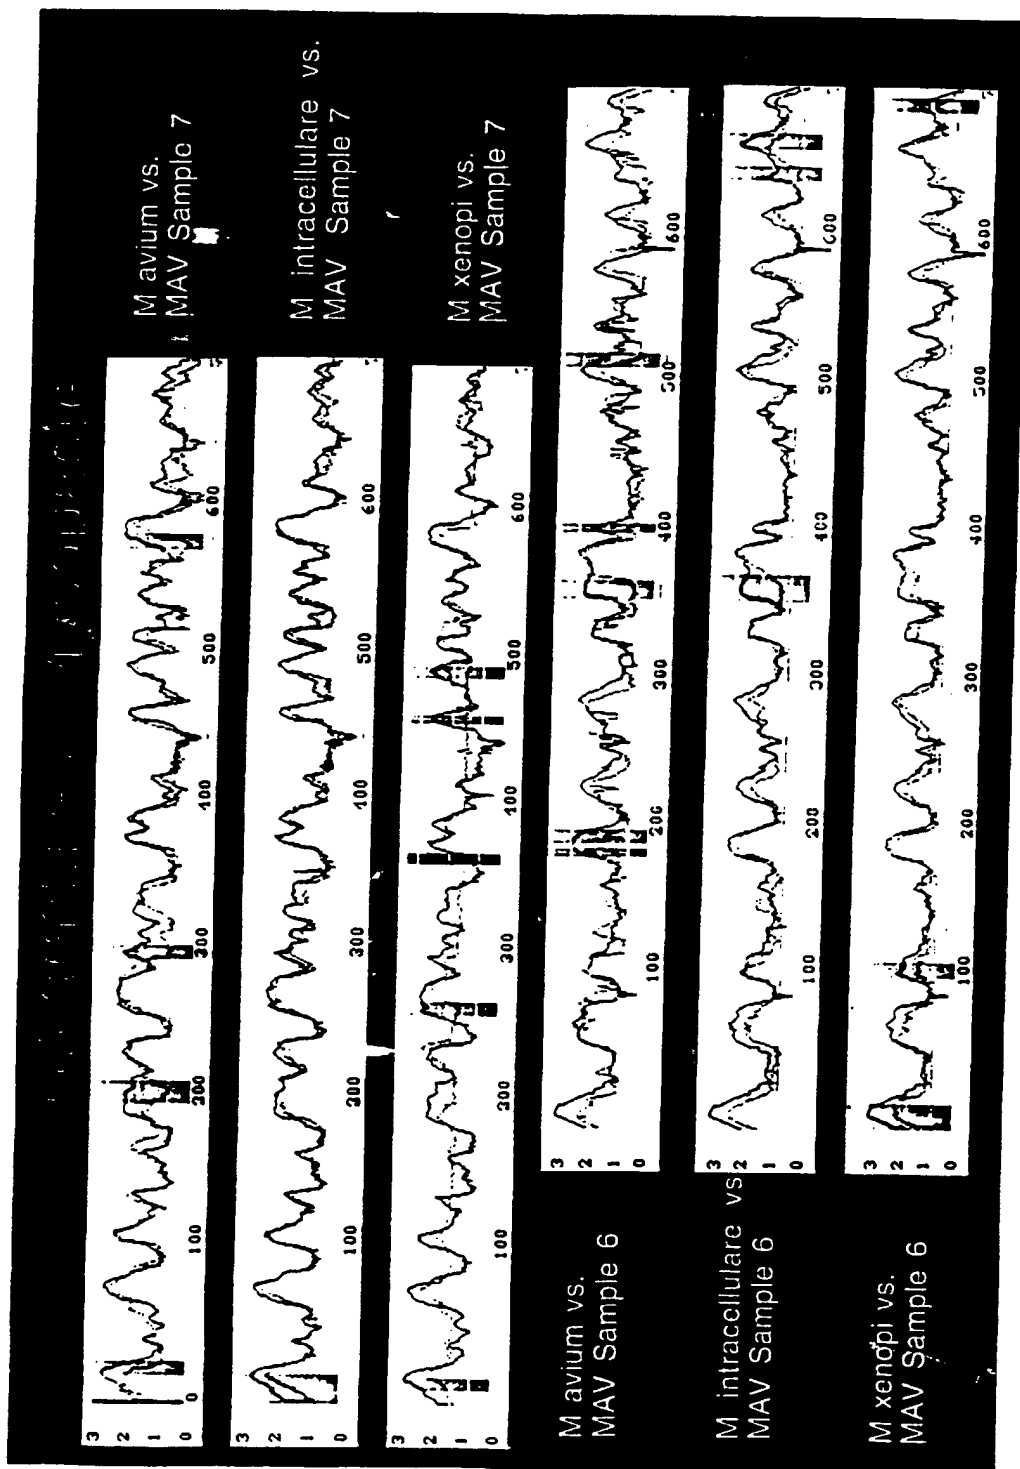 M avium vs.
MAV Sample 7
3
2
1
0
0
100
200
300
400
500
600
M intracellulare vs.
MAV Sample 7
3
2
1
0
100
200
300
400
500
600
M xenopi vs.
MAV Sample 7
3
2
1
0
100
200
300
400
500
600
M avium vs.
MAV Sample 6
3
2
1
0
100
200
300
400
500
600
M intracellulare vs
MAV Sample 6
3
2
1
0
100
200
300
400
500
600
M xenopi vs.
MAV Sample 6
3
2
1
0
100
200
300
400
500
600